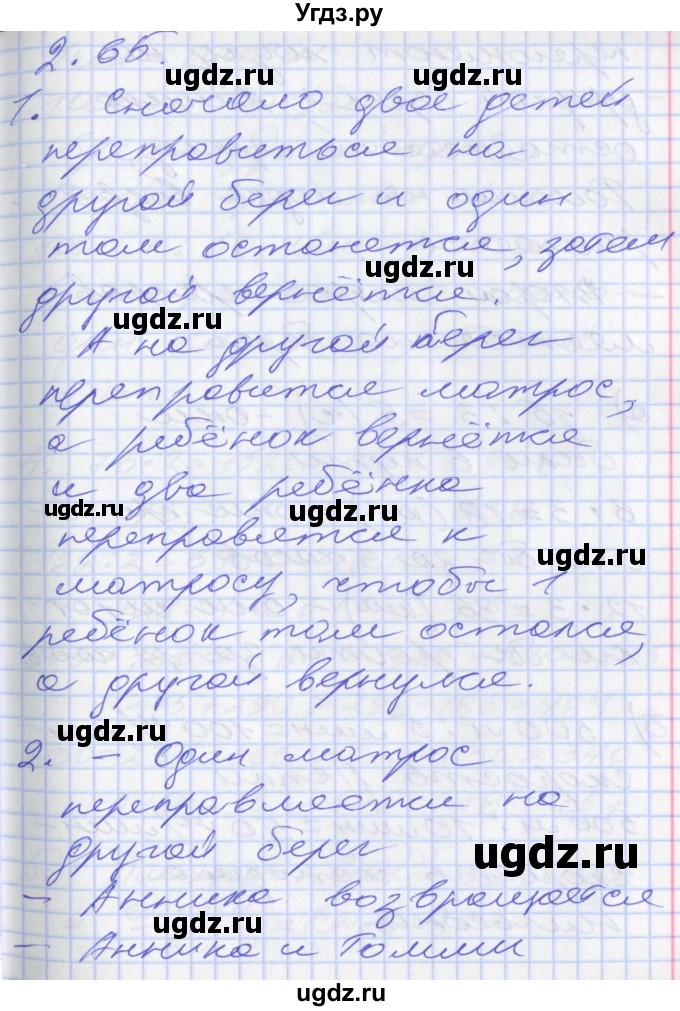 Угдз.ру
2.65.
ugdz.ru
1. Сначало двое детей
переправиться на
ugdz.ru
другой берег и один
там останется, затем
ugdz.ru
другой вернётся.
ugdz.ru
А на другой берег
переправится матрос,
а ребёнок вернётся
и два ребёнка
ugdz.ru
ugdz.ru
переправятся к
ugdz.ru
матросу, чтобы 1
ребёнок там остался,
а другой вернулся.
ugdz.ru
2. – Один матрос
переправляется на
другой берег
ugdz.ru
– Анника возвращается
ugdz.ru
ugdz.ru
– Анника и Томми
ugdz.ru